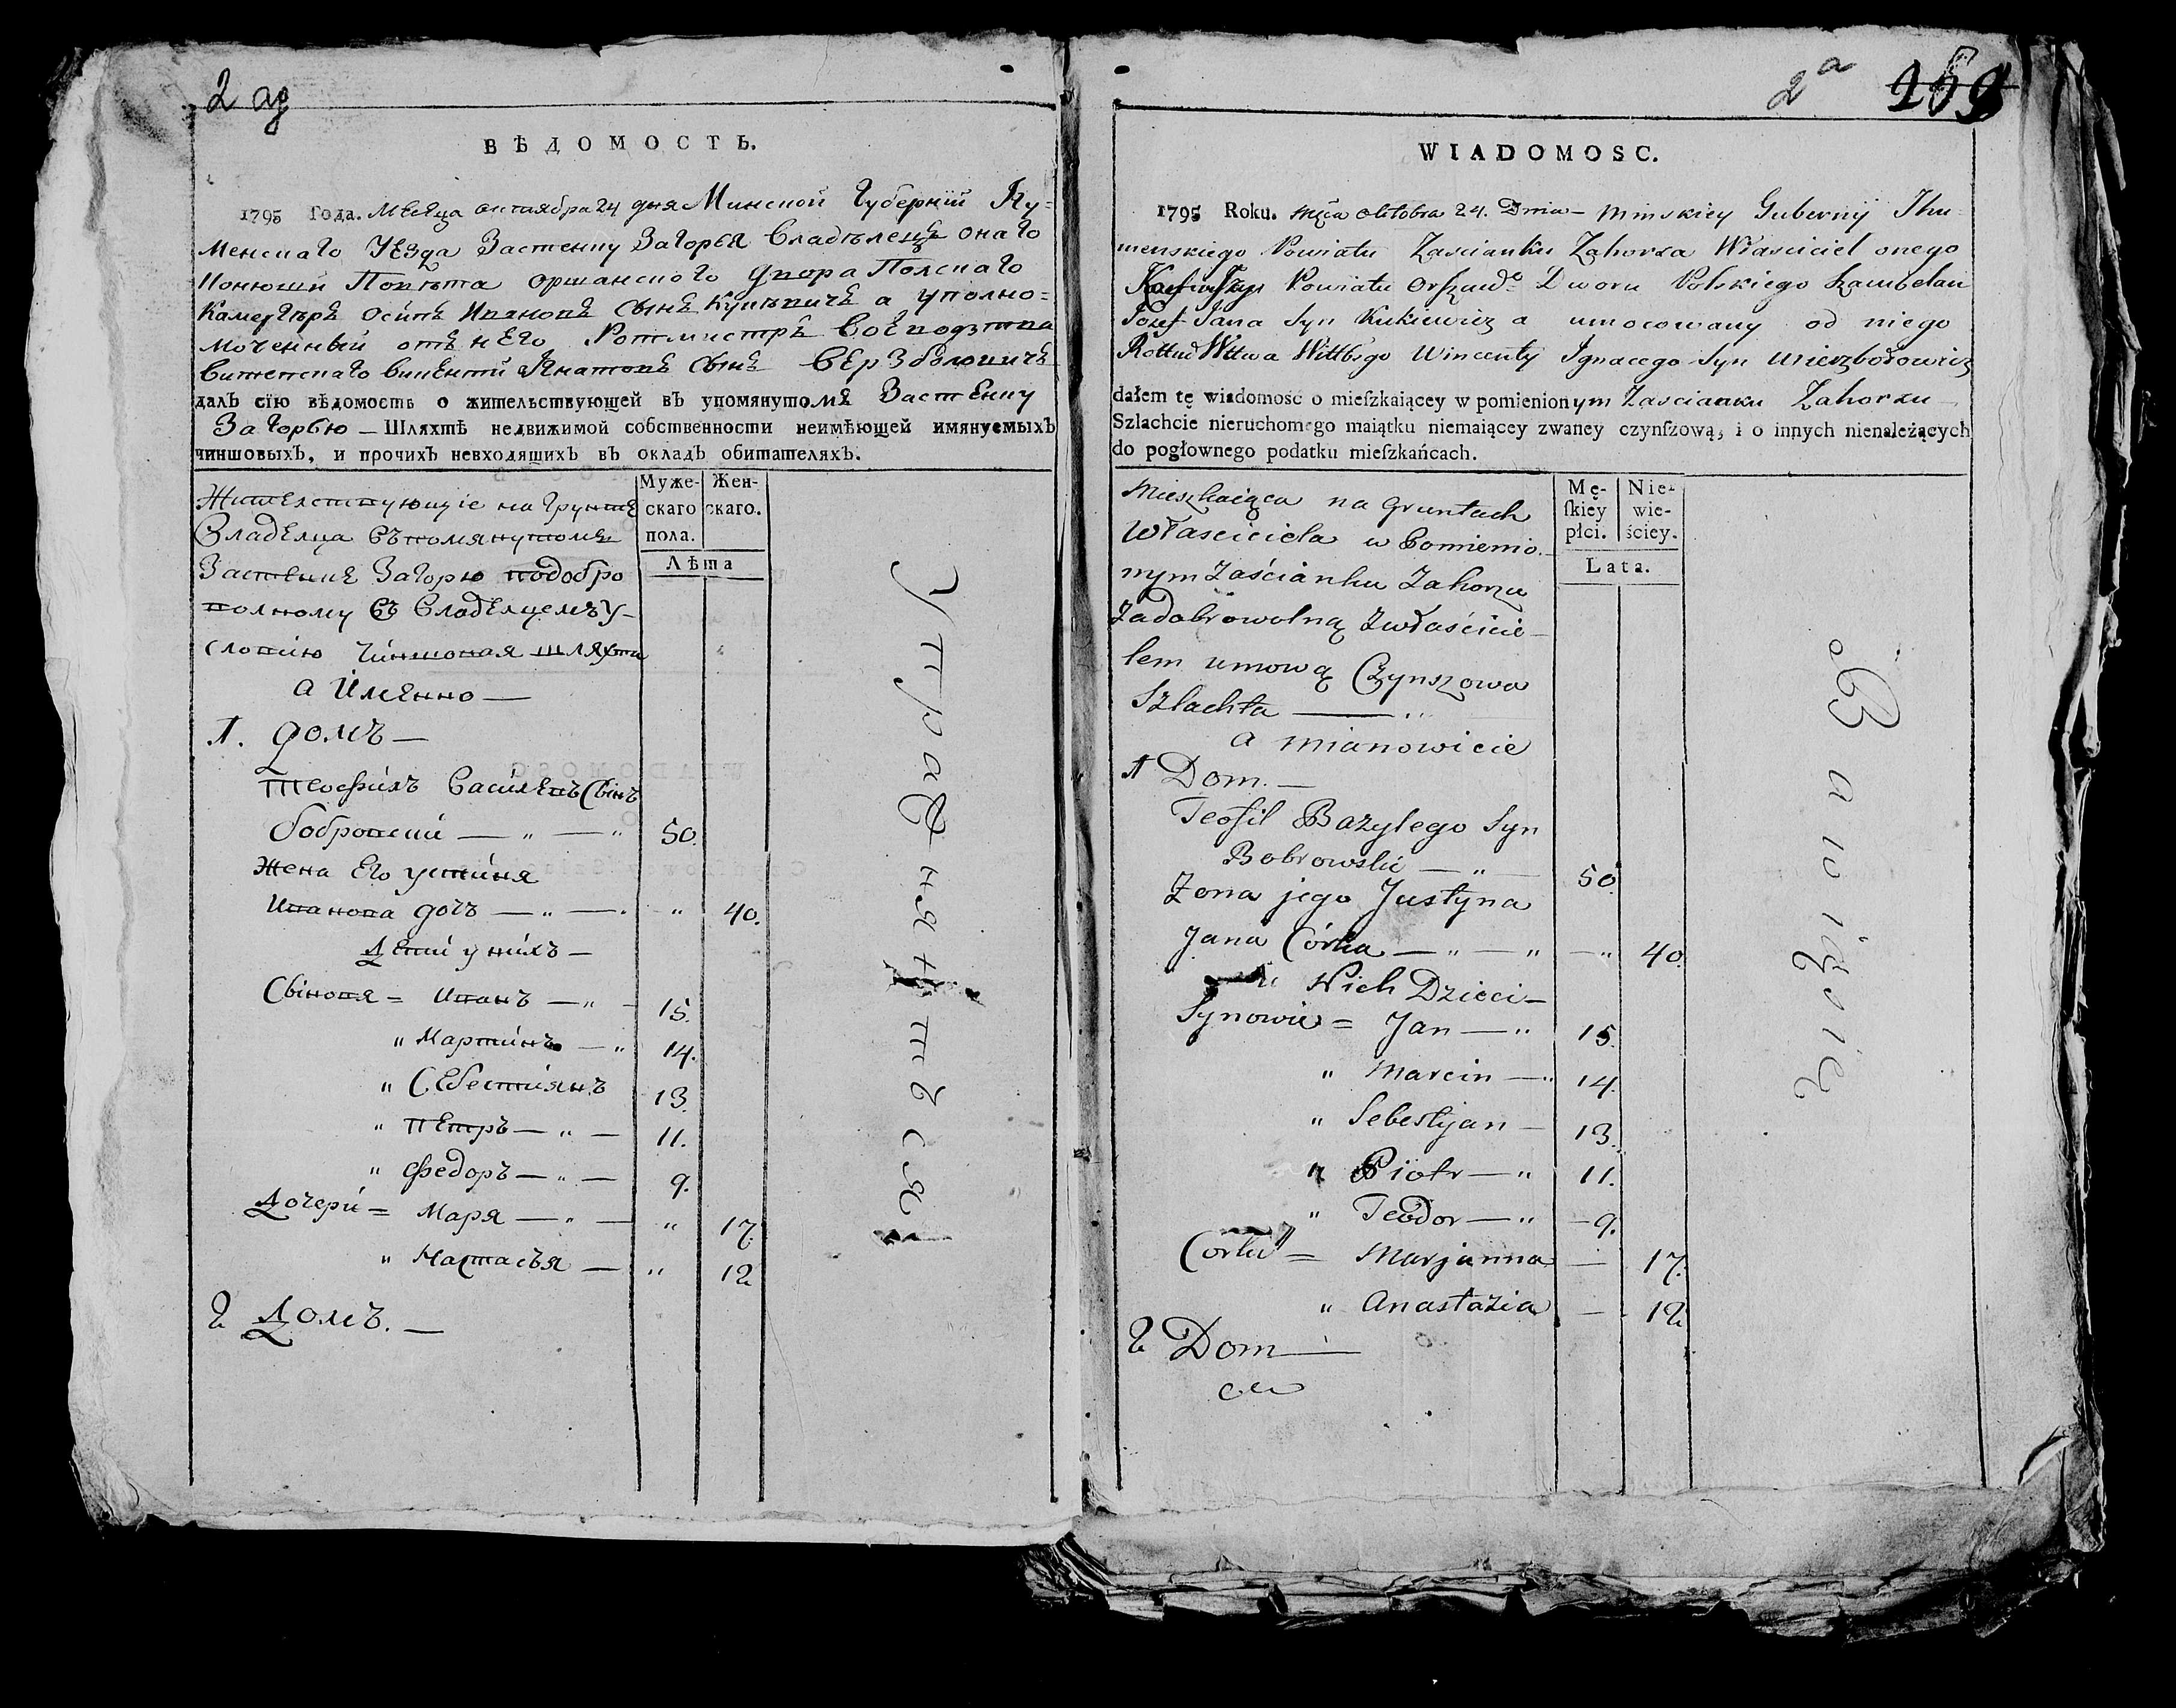 2 об
ВѢДОМОСТЬ.
1795 Года. Месяца октоября 24 дня Минской Губерніи Иγ=
менскаго Уезда Застенку Загорья Владѣлецъ онаго
Конюшій Повѣта оршанского двора Полскаго
Камергеръ Осипъ Ивановъ сынъ а уполно=
моченный отъ него Ротмистръ Воеводзтва
Витепскаго Викентій сынъ
далъ сію вѣдомость о жительствующей въ упомянутомъ Застенку
Загорью — Шляхтѣ недвижимой собственности неимѣющей имянуемыхъ
чиншовыхъ, и прочихъ невходящихъ въ окладъ обитателяхъ.
Муже- Жен-
скаго скаго.
пола.
Лѣта
Жителствующіе на Грунте
Владелца въ помянутомъ
Застенке Загорю подобро
волному съ Владелцемъ у-
словію Чиншовая шляхта
а Именно —
1. Домъ —
Теофилъ Василевъ Сынъ
Бобровскій — „ — „ 50.
Жена Его Устиня
Иванова дочъ — „ — „ 40.
Дети у нихъ —
Сыновя = Иванъ — „ — 15.
„ Мартинъ — „ 14.
„ Себестиянъ 13.
„ Петръ — „ — 11.
„ Федоръ — „ — 9.
Дочери = Маря — „ — „ 17.
„ Настасъя — „ 12
2 Домъ. —
Утраднянтъ ся
2a 259
WIADOMOSC.
1795 Roku. mca Oktobra 24. Dnia — Minskiey Gubernij Ihu=
menskiego Powiatu Zascianku Zahorza Własciciel onego
Powiatu Orszand° Dworu Polskiego Szambelan
Jozef Jana Syn Kukiewicz a umocowany od niego
Wincenty Ignacego Syn Wierzbołowicz
dałem tę wiadomość o mieſzkaiącey w pomienionym Zascianku Zahorzu —
Szlachcie nieruchomego maiątku niemaiącey zwaney czynſzową, i o innych nienależących
do pogłownego podatku mieſzkańcach.
Mę- Nie-
ſkiey wie-
płci. ściey.
Lata.
Mieszkaiąca na Gruntach
Własciciela w Pomienio-
nym Zaścianku Zahorzu
Zadobrowolną Zwłaścicie-
lem umową Czynszowa
Szlachta —— „
a mianowicie
1 Dom. —
Teofil Bazylego Syn
Bobrowski — „ — 50.
Zona jego Justyna
Jana Córka — „ — „ — „ 40.
u Nich Dzieci —
Synowie = Jan — „ 15.
„ Marcin — „ 14.
„ Sebestyan — 13.
„ Piotr — „ 11.
„ Teodor — „ — 9.
Corki = Marjanna — 17.
„ Anastazia — 12
2 Dom —